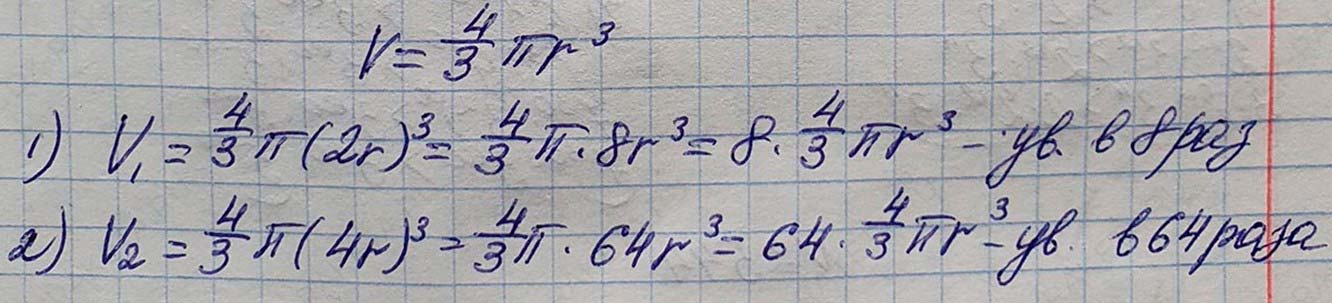 V = 4/3 πr³
1) V₁ = 4/3 π(2r)³ = 4/3 π · 8r³ = 8 · 4/3 πr³ - ув. в 8 раз
2) V₂ = 4/3 π(4r)³ = 4/3 π · 64r³ = 64 · 4/3 πr³ - ув. в 64 раза